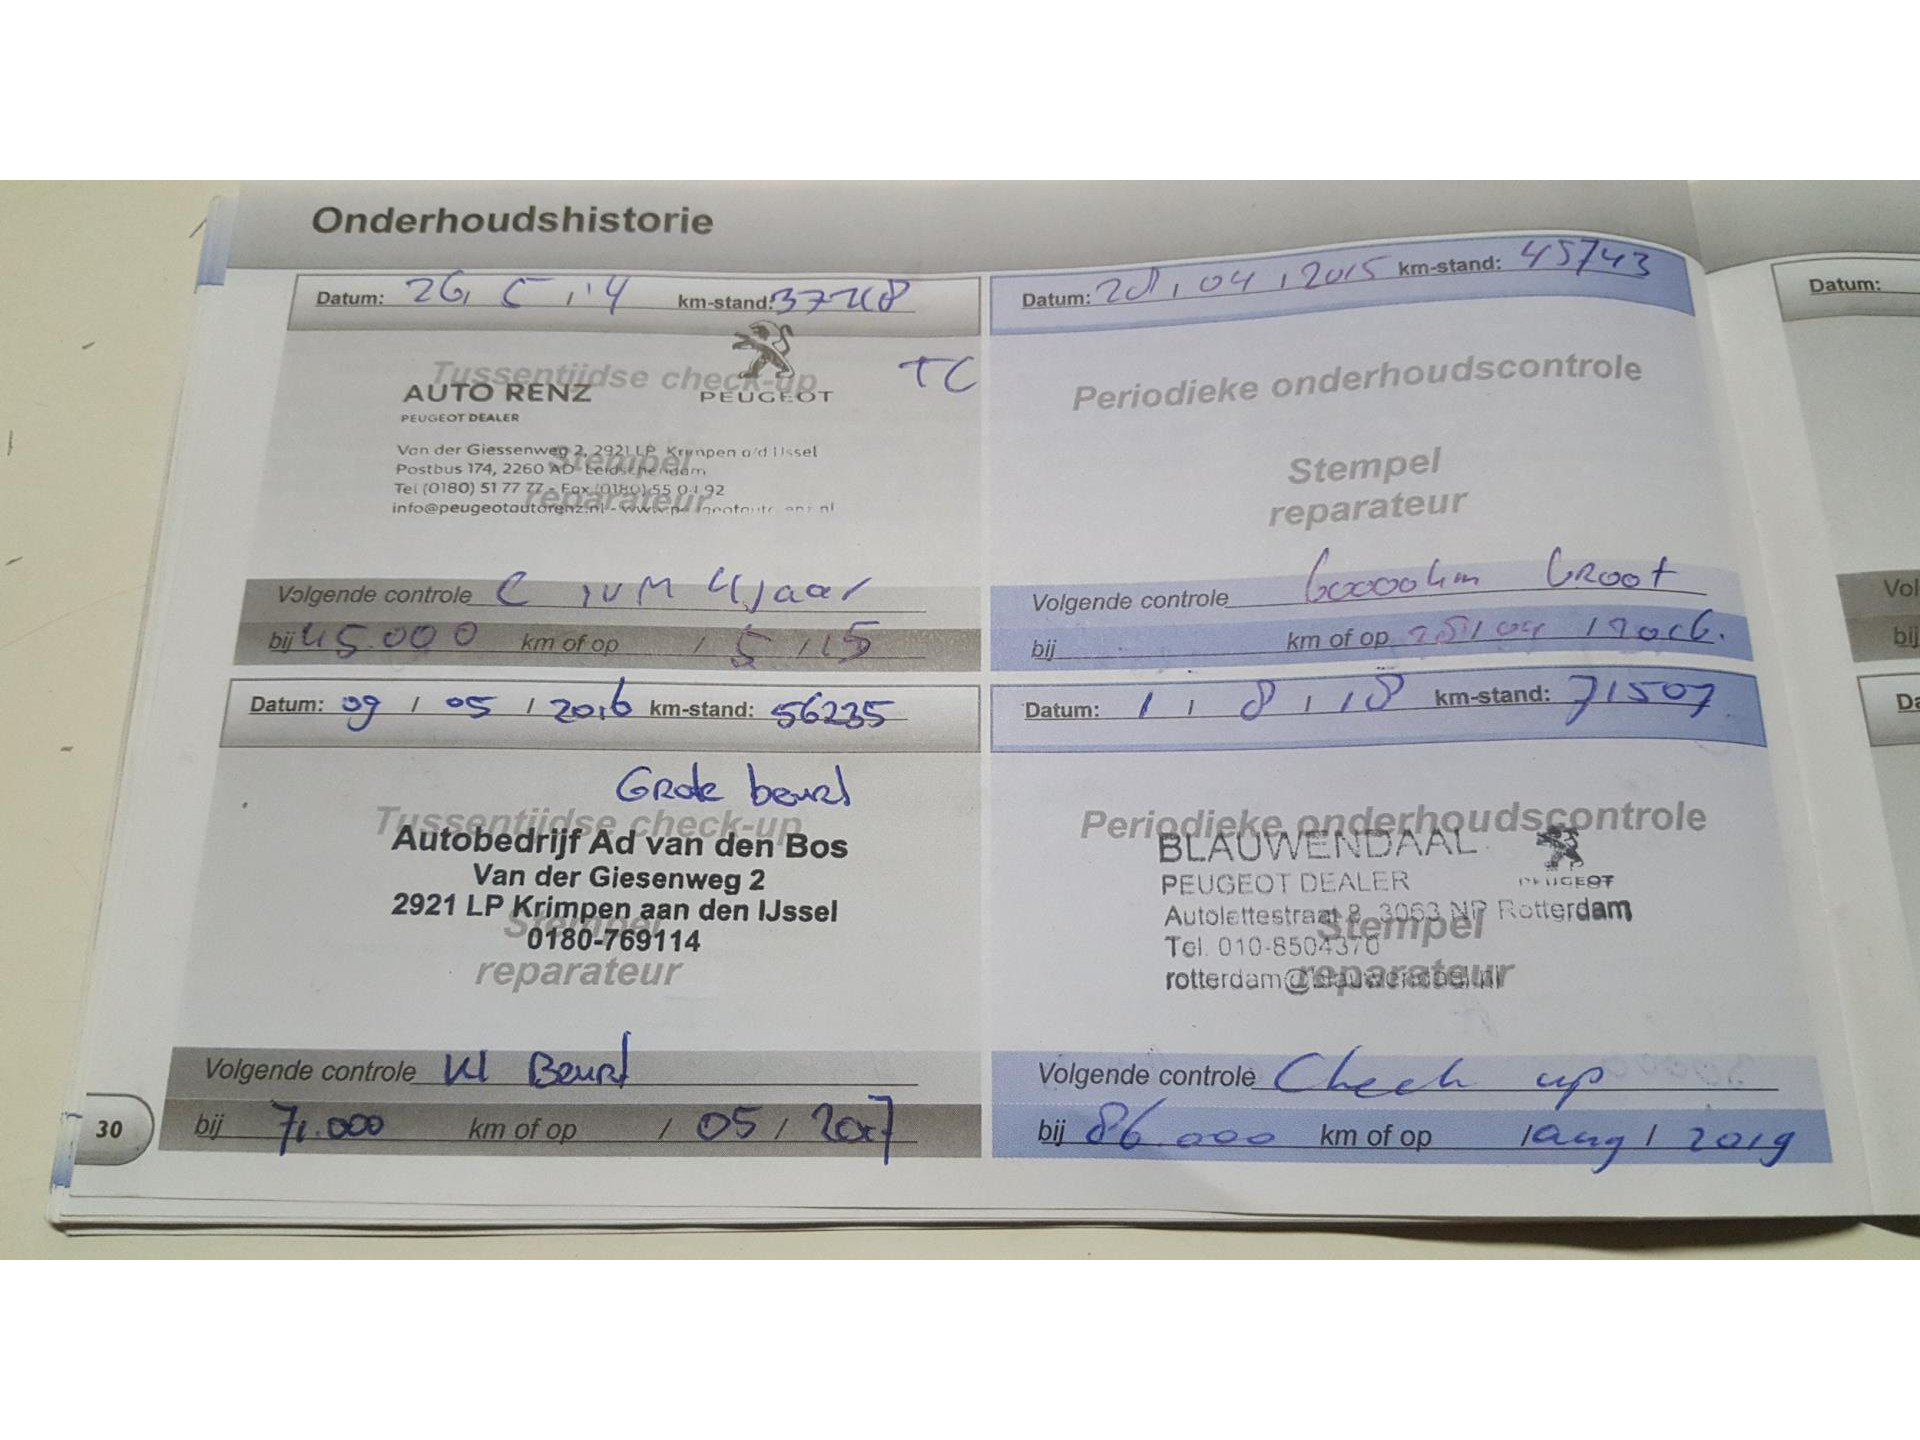 Onderhoudshistorie
Datum: 26, 5, '4 km-stand: 37268
TC
Tussentijdse check-up
AUTO RENZ
PEUGEOT DEALER
PEUGEOT
Stempel
reparateur
Van der Giessenweg 2, 2921 LP Krimpen a/d IJssel
Postbus 174, 2260 AD Leidschendam
Tel (0180) 51 77 77 - Fax (0180) 55 04 92
info@peugeotautorenz.nl -
Volgende controle C IVM 4 jaar
bij 45.000 km of op / 5 / 15
Datum: 28, 04, 2015 km-stand: 45743
Periodieke onderhoudscontrole
Stempel
reparateur
Volgende controle 60000km Groot
bij km of op 28/04 / 2016.
Datum: 09 / 05 / 2016 km-stand: 56235
Grote beurt
Tussentijdse check-up
Autobedrijf Ad van den Bos
Van der Giesenweg 2
2921 LP Krimpen aan den IJssel
Stempel
0180-769114
reparateur
Volgende controle Kl Beurt
bij 71.000 km of op / 05 / 2017
Datum: 1, 8, 18 km-stand: 71507
Periodieke onderhoudscontrole
BLAUWENDAAL
PEUGEOT DEALER PEUGEOT
Autolettestraat 8, 3063 NP Rotterdam
Stempel
Tel. 010-8504370
rotterdam@blauwendaal.nl
reparateur
Volgende controle Check up
bij 86.000 km of op / aug / 2019
30
Datum:
Vol
bij
Da